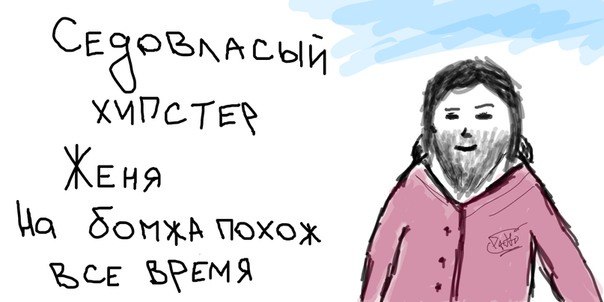 Седовласый
хипстер
Женя
На бомжа похож
все время